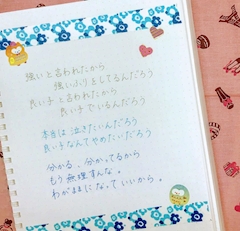 強いと言われたから
強いふりをしてるんだろう
良い子と言われたから
良い子でいるんだろう
本当は泣きたいんだろう
良い子なんてやめたいだろう
分かる、分かってるから
もう無理すんな。
わがままになっていいから。